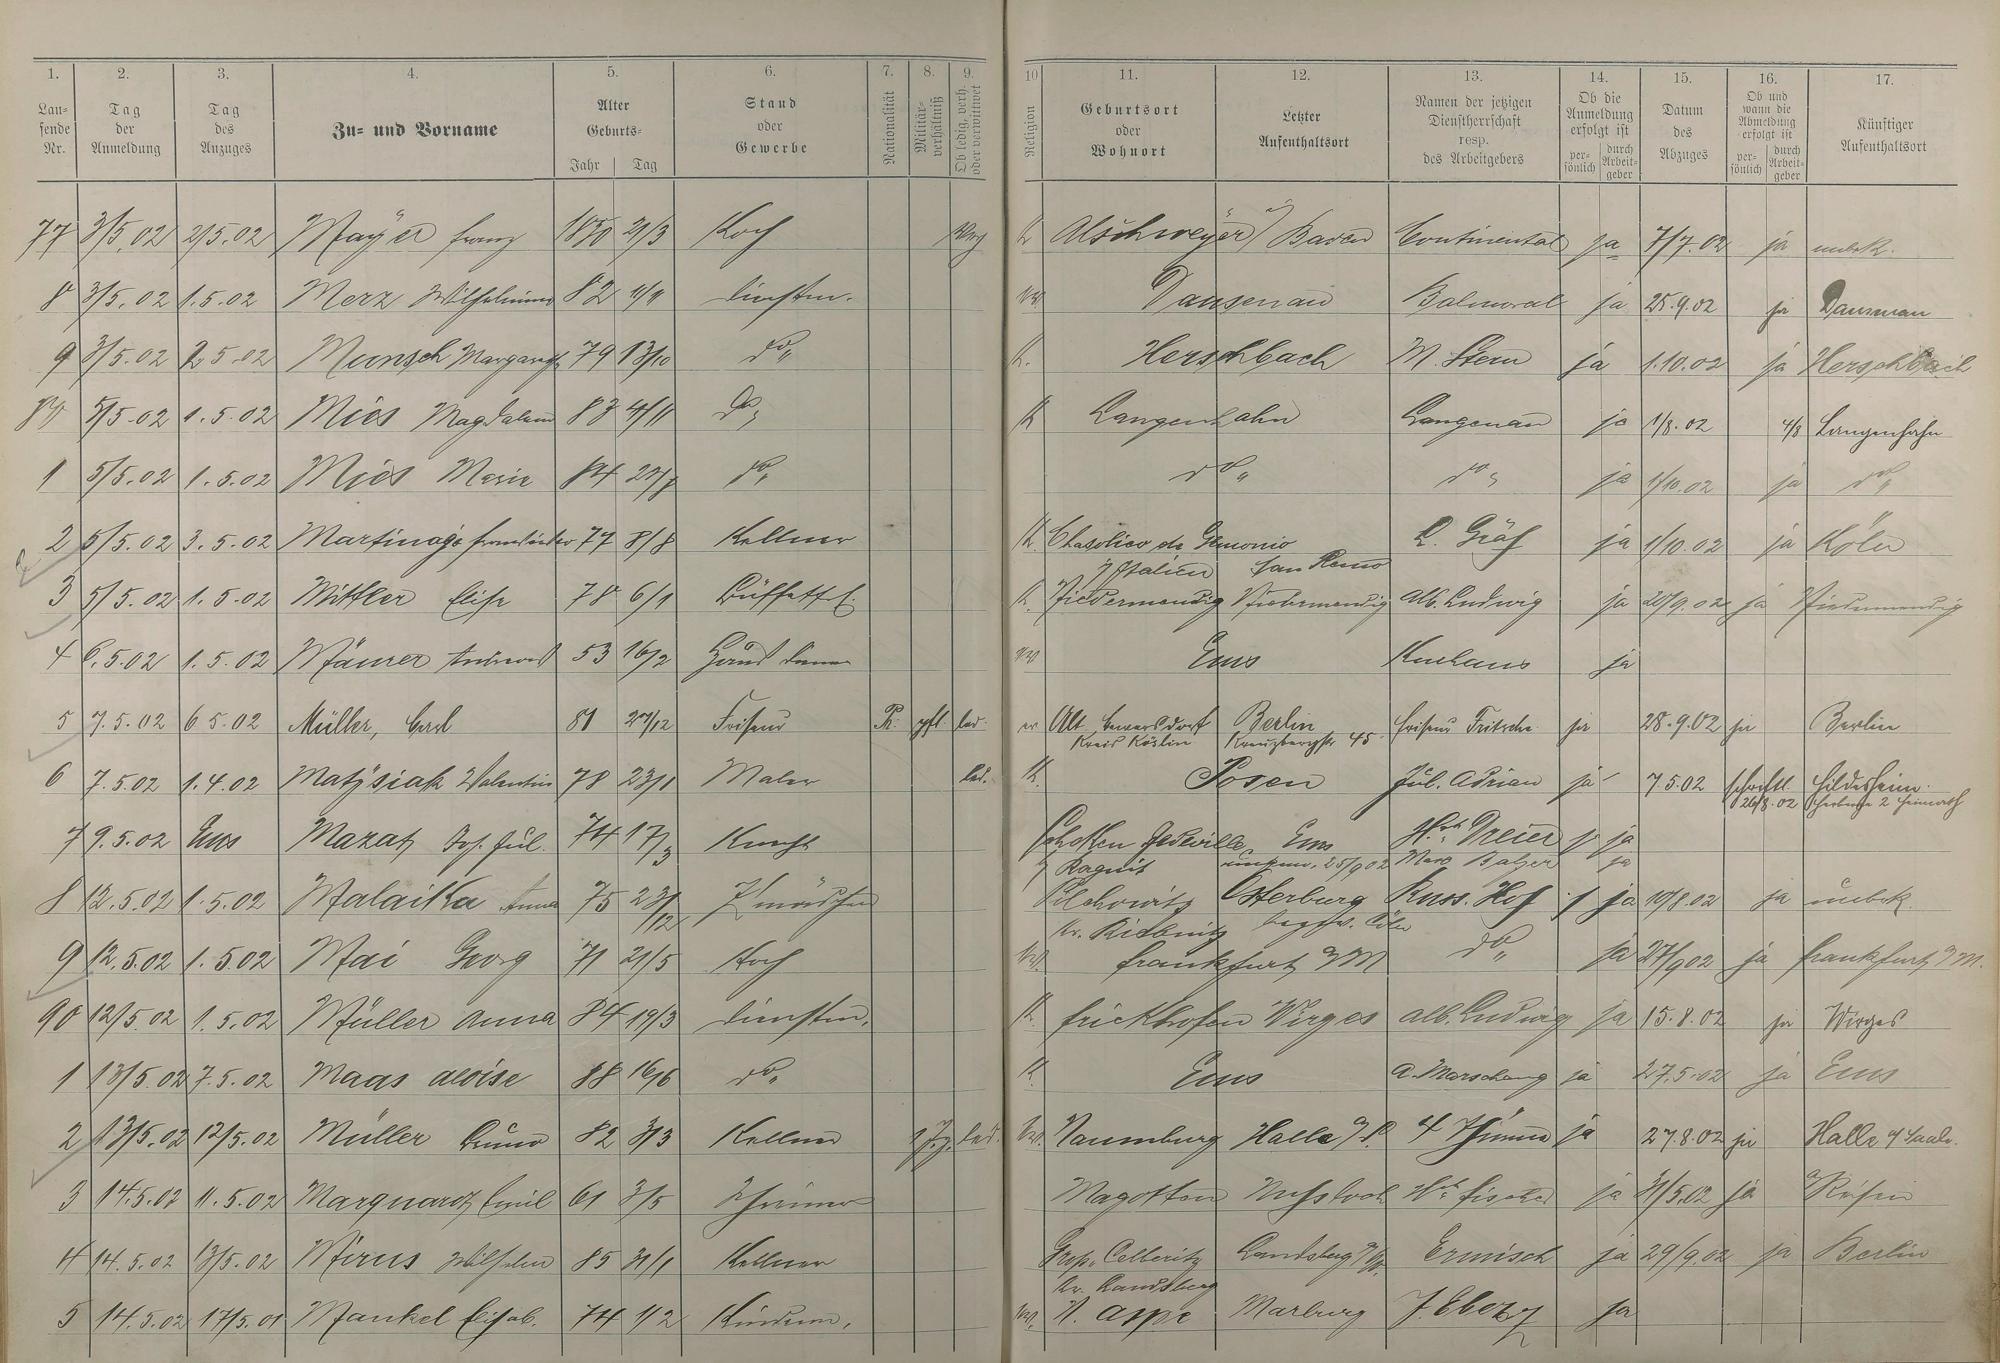 1. 2. 3. 4. 5. 6. 7. 8. 9. 10 11. 12. 13. 14. 15. 16. 17.
Laufende Nr. Tag der Anmeldung Tag des Anzuges Zu- und Vorname Alter Geburts- Jahr Tag Stand oder Gewerbe Nationalität Militärverhältniß Ob ledig, verh. oder verwitwet Religion Geburtsort oder Wohnort Letzter Aufenthaltsort Namen der jetzigen Dienstherrschaft resp. des Arbeitgebers Ob die Anmeldung erfolgt ist persönlich durch Arbeitgeber Datum des Abzuges Ob und wann die Abmeldung erfolgt ist persönlich durch Arbeitgeber Künftiger Aufenthaltsort
77 3/5.02 2/5.02 Mayer Franz 1850 21/3 Koch K Baden Continental ja 7/7.02 ja unbek.
8 3/5.02 1.5.02 Merz Wilhelmine 82 Dienstm. Dausenau Balmoral ja 25.9.02 ja Dausenau
9 3/5.02 2.5.02 Munsch Margareth 79 13/10 do K. Herschbach M. Stern ja 1.10.02 ja Herschbach
80 5/5.02 1.5.02 Mies Magdalena 83 4/11 do K Langenhahn Langenau ja 1/8.02 4/8 Langenhahn
1 5/5.02 1.5.02 Mies Marie 84 do do do ja 1/10.02 ja do
2 5/5.02 3.5.02 77 8/8 Kellner K. San Remo L. Gräf ja 1/10.02 ja Köln
Italien
3 5/5.02 1.5.02 Mittler Elise 78 6/1 K. Niedermendig Niedermendig Alb. Ludwig ja 9.02 ja Niedermendig
4 6.5.02 1.5.02 Mäurer Andreas 53 16/2 Ems Kurhaus ja
5 7.5.02 6.5.02 Müller, 81 27/12 Friseur Pr. pfl. led. ev Alt Berlin Friseur Fritsche ja 28.9.02 ja Berlin
Kreis Köslin Kreuzbergstr 45
6 7.5.02 1.4.02 Matysiak Valentin 78 23/1 Maler led. K. Posen Jul. Adrian ja 7.5.02 schriftl. Hildesheim
26/8.02 Herberge z Heimath
7 9.5.02 Ems Mazat Jos. Jul. 74 17/3 Knecht Ems Dreier ja
Ragnit 25/9 02 Balzer ja
8 12.5.02 1.5.02 Malaika Anna 75 23/12 Pilchowitz Osterburg Russ. Hof ja 8.02 ja unbek.
Kr. Ribnik
9 12.5.02 1.5.02 Mai Georg 71 21/5 Koch Frankfurt a/M do ja 27/9 02 ja Frankfurt a/M.
90 12/5.02 1.5.02 Müller Anna 84 19/3 Dienstm. K. Frickhofen Wirges Alb. Ludwig ja 15.8.02 ja Wirges
1 13/5.02 7.5.02 Maas Aloise 88 16/6 do K. Ems ja 27.5.02 ja Ems
2 13/5.02 12/5.02 Müller Bruno 82 3/3 Kellner led. Naumburg Halle a/S. 4 Thürme ja 27.8.02 ja Halle a/Saale.
3 14.5.02 11.5.02 Marquardt Emil 61 3/5 Fischer ja 31/5.02 ja
4 14.5.02 13/5.02 Mirus Wilhelm 85 31/1 Kellner Landsberg Ermisch ja 29/9.02 ja Berlin
Kr. Landsberg
5 14.5.02 17/5.01 Mankel Elisab. 74 1/2 Marburg J. Ebertz ja